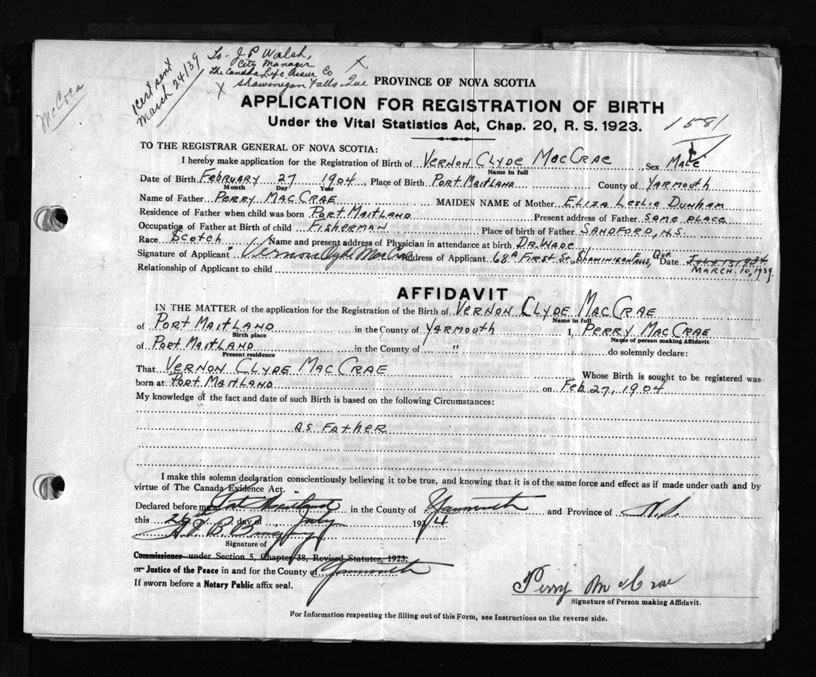 McCrea
1 cert sent
March 24/39
To - J P Walsh,
City Manager
The Canada Life Assur Co
X Shawinigan Falls Que X
PROVINCE OF NOVA SCOTIA
APPLICATION FOR REGISTRATION OF BIRTH
Under the Vital Statistics Act, Chap. 20, R. S. 1923.
1581
TO THE REGISTRAR GENERAL OF NOVA SCOTIA:
I hereby make application for the Registration of Birth of VERNON CLYDE MACCRAE, Sex MALE
Name in full
Date of Birth FEBRUARY 27 1904, Place of Birth PORT MAITLAND County of YARMOUTH
Month Day Year
Name of Father PERRY MACCRAE MAIDEN NAME of Mother ELIZA LESLIE DUNHAM
Residence of Father when child was born PORT MAITLAND Present address of Father SAME PLACE
Occupation of Father at Birth of child FISHERMAN Place of birth of Father SANDFORD, N.S.
Race SCOTCH Name and present address of Physician in attendance at birth DR. WADE
Signature of Applicant Vernon Clyde MacCrae Address of Applicant 68A FIRST ST. SHAWINIGAN FALLS, QUE Date JULY 1934
MARCH. 10, 1939
Relationship of Applicant to child
AFFIDAVIT
IN THE MATTER of the application for the Registration of the Birth of VERNON CLYDE MACCRAE
Name in full
of PORT MAITLAND in the County of YARMOUTH I, PERRY MACCRAE
Birth place Name of person making Affidavit
of PORT MAITLAND in the County of " do solemnly declare:
Present residence
That VERNON CLYDE MACCRAE Whose Birth is sought to be registered was
born at PORT MAITLAND on FEB. 27, 1904
My knowledge of the fact and date of such Birth is based on the following Circumstances:
AS FATHER
I make this solemn declaration conscientiously believing it to be true, and knowing that it is of the same force and effect as if made under oath and by
virtue of The Canada Evidence Act.
Declared before me at Port Maitland in the County of Yarmouth and Province of N.S.
this 26 day of July 1934
Signature of
Commissioner under Section 5, Chapter 38, Revised Statutes, 1923;
or Justice of the Peace in and for the County of Yarmouth
If sworn before a Notary Public affix seal.
Perry McCrae
Signature of Person making Affidavit.
For Information respecting the filling out of this Form, see Instructions on the reverse side.